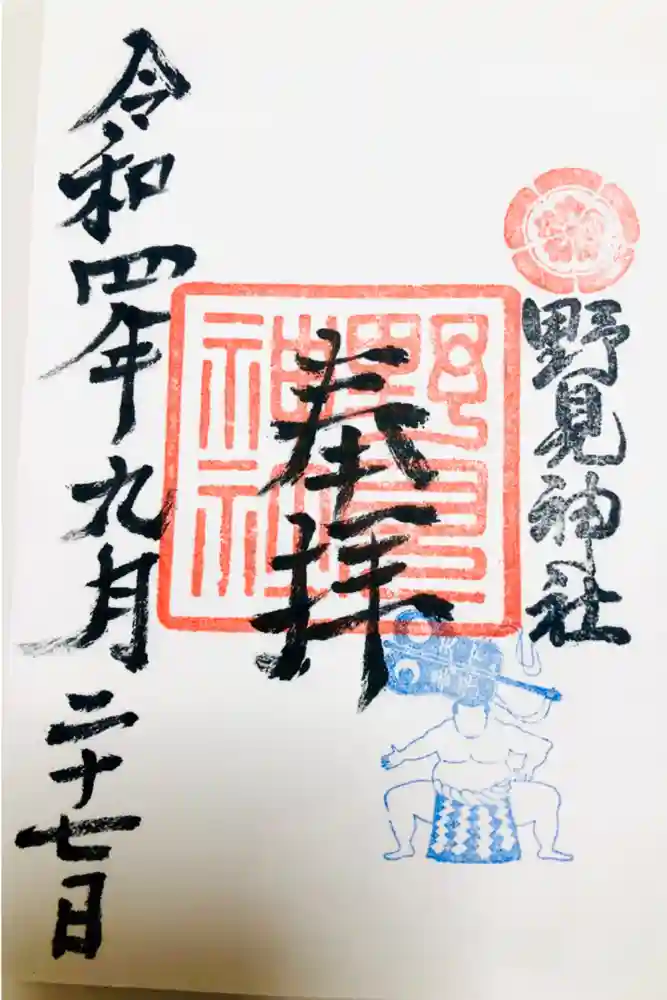 野見神社
奉拝
野見
神社
令和四年九月二十七日